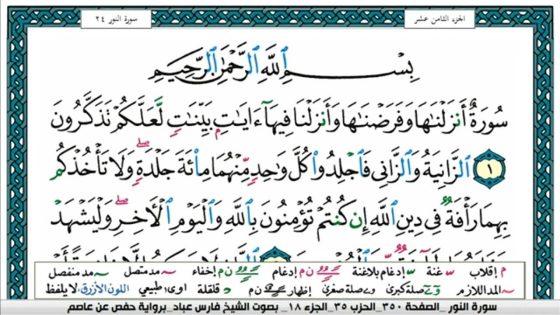 الجزء الثامن عشر
سورة النور ٢٤
بِسْمِ اللَّهِ الرَّحْمَٰنِ الرَّحِيمِ
سُورَةٌ أَنزَلْنَاهَا وَفَرَضْنَاهَا وَأَنزَلْنَا فِيهَا ءَايَاتٍ بَيِّنَاتٍ لَّعَلَّكُمْ تَذَكَّرُونَ
١ الزَّانِيَةُ وَالزَّانِي فَاجْلِدُوا كُلَّ وَاحِدٍ مِّنْهُمَا مِائَةَ جَلْدَةٍ ۖ وَلَا تَأْخُذْكُم
بِهِمَا رَأْفَةٌ فِي دِينِ اللَّهِ إِن كُنتُمْ تُؤْمِنُونَ بِاللَّهِ وَالْيَوْمِ الْآخِرِ ۖ وَلْيَشْهَدْ
م إقلاب ـ غنة ـ إدغام بلاغنة ن م إدغام ن م إخفاء ـ مد متصل ـ مد منفصل
ـ المد اللازم ـ و ي صلة كبرى و ي صلة صغرى إظهار ن م ـ قلقلة اوى: طبيعي اللون الأزرق: لا يلفظ
سورة النور _الصفحة ٣٥٠_ الحزب ٣٥_ الجزء ١٨_ بصوت الشيخ فارس عباد_ برواية حفص عن عاصم